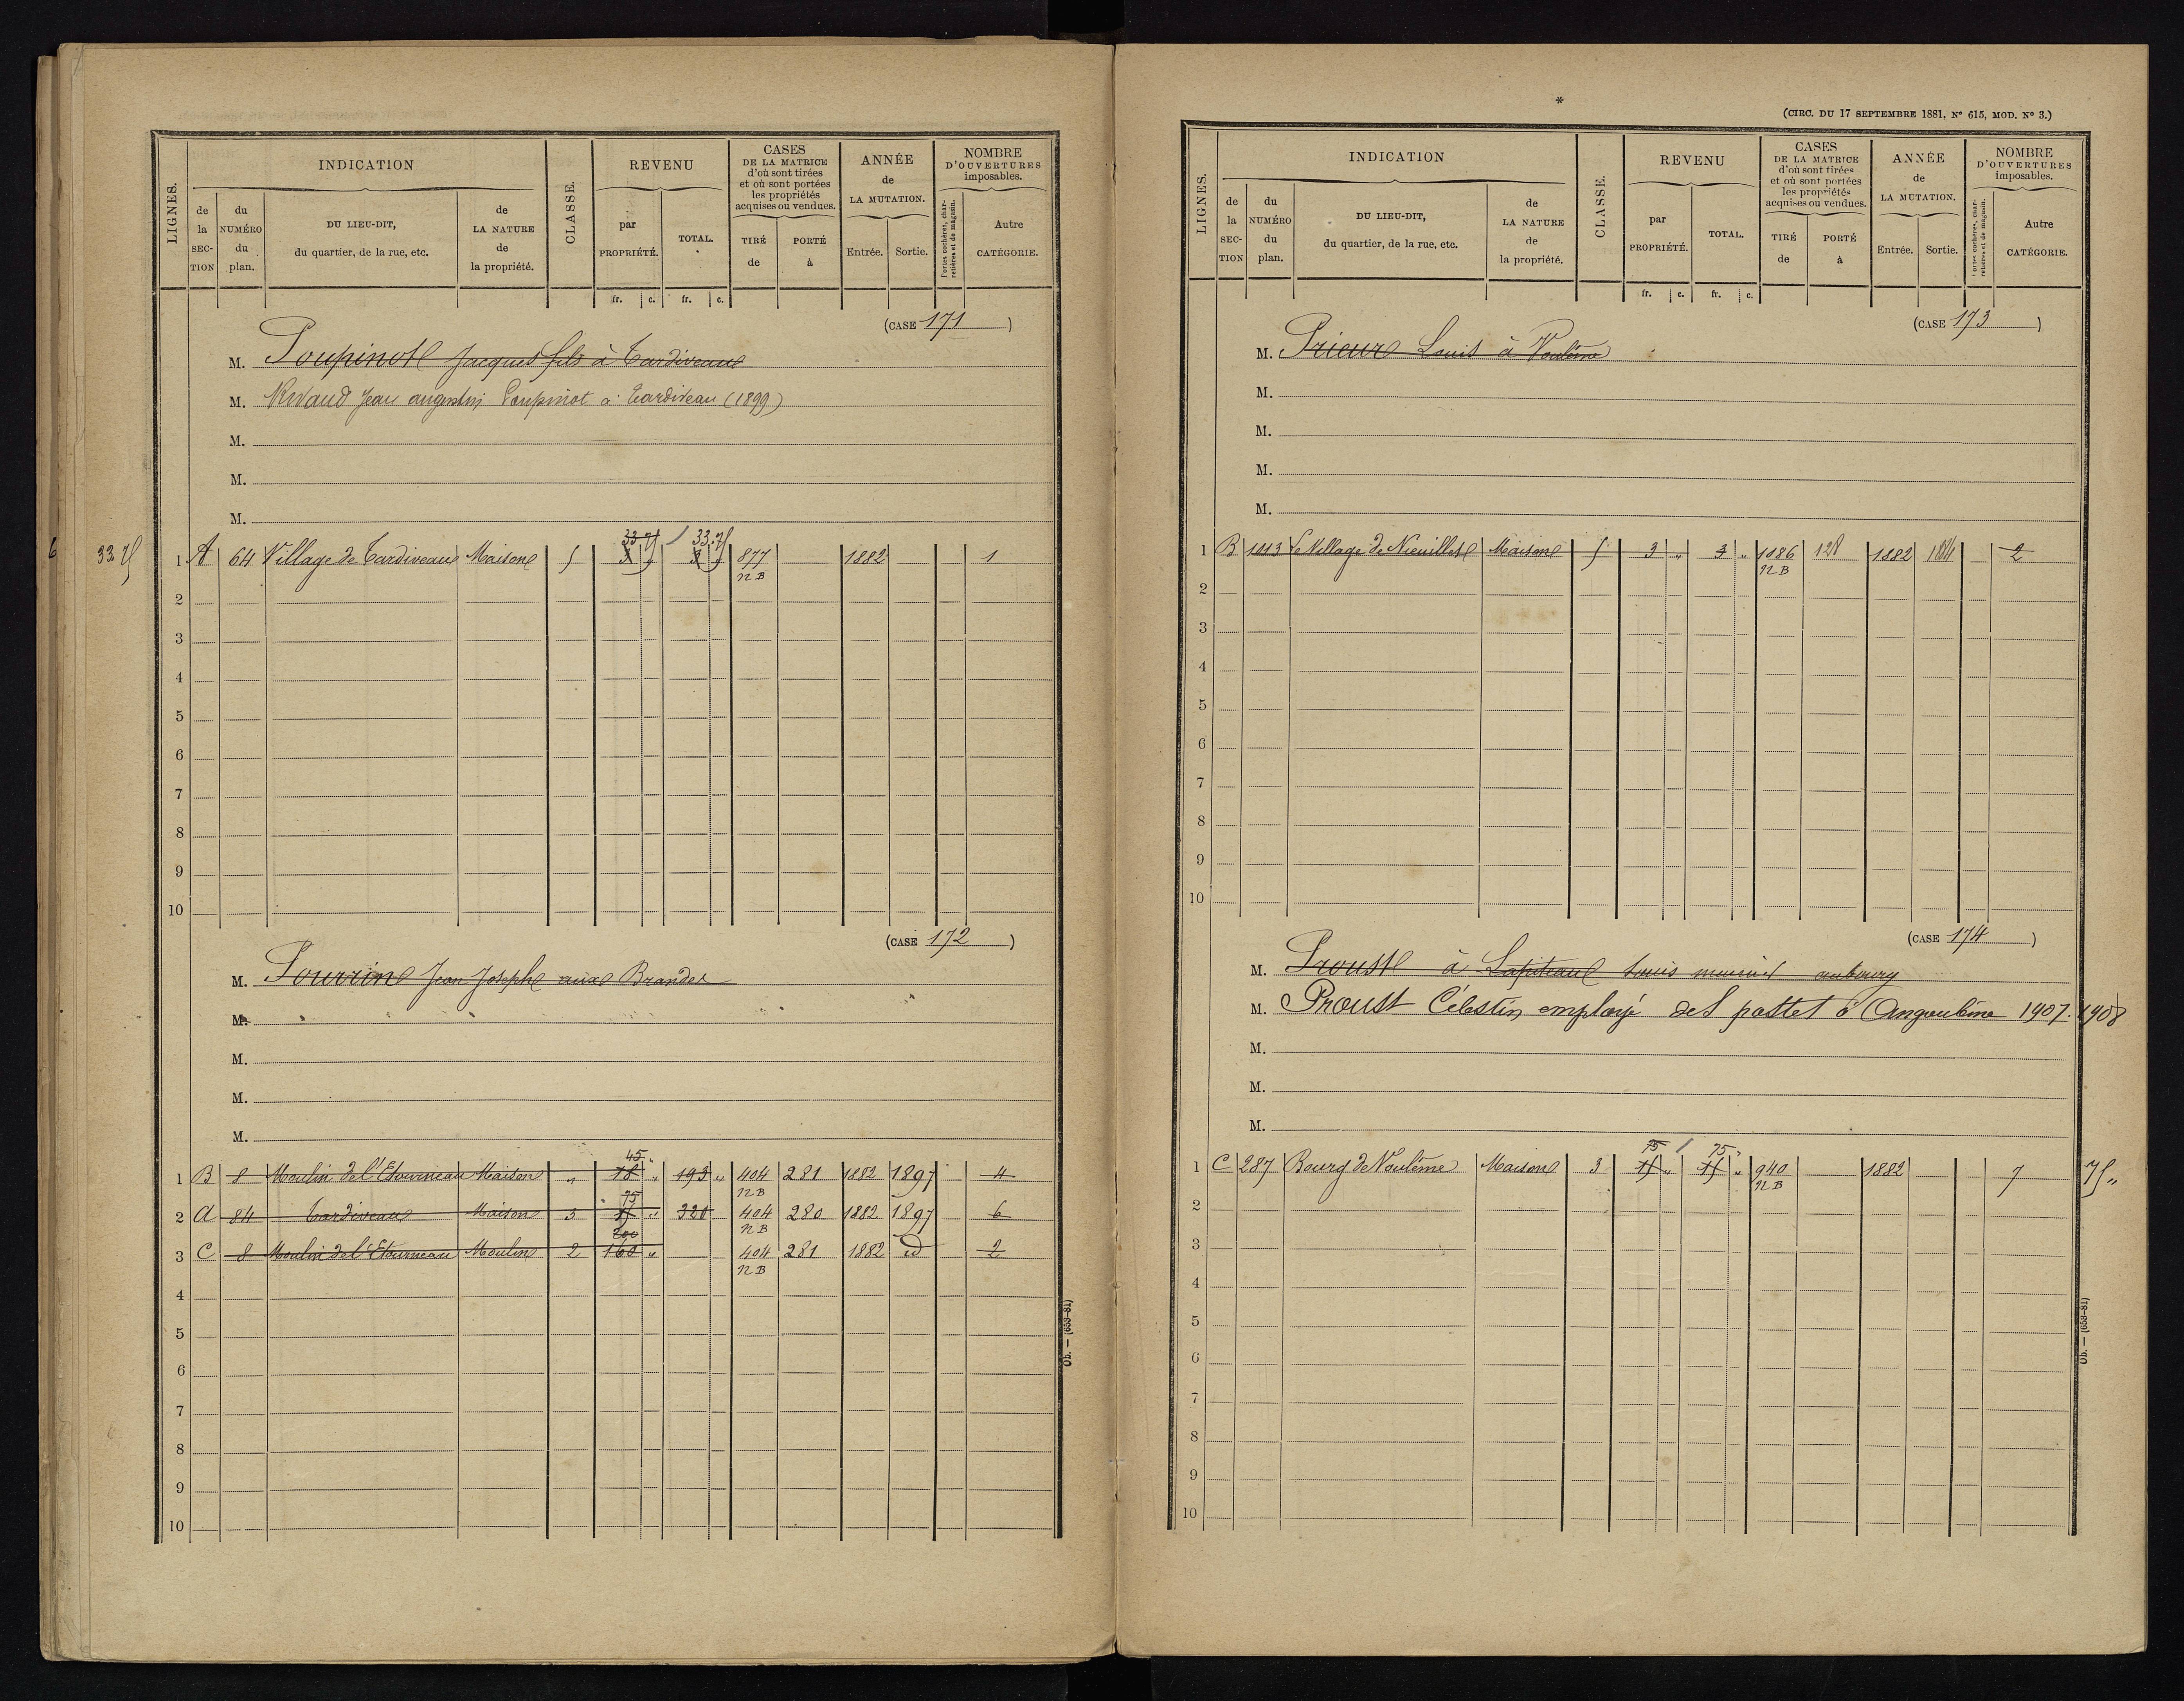 LIGNES.
INDICATION
de la SECTION
du NUMÉRO du plan.
DU LIEU-DIT, du quartier, de la rue, etc.
de LA NATURE de la propriété.
CLASSE.
REVENU
par PROPRIÉTÉ.
TOTAL.
CASES DE LA MATRICE d'où sont tirées et où sont portées les propriétés acquises ou vendues.
TIRÉ de
PORTÉ à
ANNÉE de LA MUTATION.
Entrée. Sortie.
NOMBRE D'OUVERTURES imposables.
Portes cochères, charretières et de magasin.
Autre CATÉGORIE.
fr. c. fr. c.
(CASE 171)
M. Poupinot Jacques fils à Tardiveau
M. Rivaud Jean augustin Poupinot à Tardiveau (1899)
M.
M.
M.
33.75 33.75
6 33.75 1 A 64 Village de Tardiveau Maison 5 3 " 3 " 877 1882 1
NB
2
3
4
5
6
7
8
9
10
(CASE 172)
M. Pourrin Jean Joseph aux Brandes
M.
M.
M.
M.
45 "
1 B 8 Moulin de l'Etourneau Maison " 18 " 193 " 404 281 1882 1897 4
NB
75
2 A 84 Tardiveau Maison 3 15 " 320 404 280 1882 1897 6
NB
200
3 C 8 Moulin de l'Etourneau Moulin 2 160 " 404 281 1882 id 2
NB
4
5
6
7
8
9
10
Ob. — (653-81)
*
(CIRC. DU 17 SEPTEMBRE 1881, N° 615, MOD. N° 3.)
LIGNES.
INDICATION
de la SECTION
du NUMÉRO du plan.
DU LIEU-DIT, du quartier, de la rue, etc.
de LA NATURE de la propriété.
CLASSE.
REVENU
par PROPRIÉTÉ.
TOTAL.
CASES DE LA MATRICE d'où sont tirées et où sont portées les propriétés acquises ou vendues.
TIRÉ de
PORTÉ à
ANNÉE de LA MUTATION.
Entrée. Sortie.
NOMBRE D'OUVERTURES imposables.
Portes cochères, charretières et de magasin.
Autre CATÉGORIE.
fr. c. fr. c.
(CASE 173)
M. Prieur Louis à Voulême
M.
M.
M.
M.
1 B 1013 Le Village de Nieuillet Maison 5 3 " 3 " 1086 128 1882 1884 2
NB
2
3
4
5
6
7
8
9
10
(CASE 174)
M. Proust à Lapiteau Louis aubourg
M. Proust Célestin employé des postes à Angoulême 1907. 1908
M.
M.
M.
75 75 "
1 C 287 Bourg de Voulême Maison 3 15 " 15 " 940 1882 7 75 "
NB
2
3
4
5
6
7
8
9
10
Ob. — (653-81)